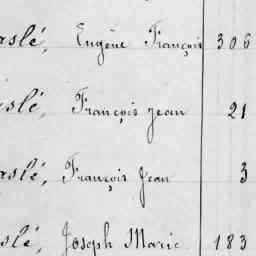 aslé, Eugène François 306
slé, François Jean 21
aslé, François Jean 3
slé, Joseph Marie 183